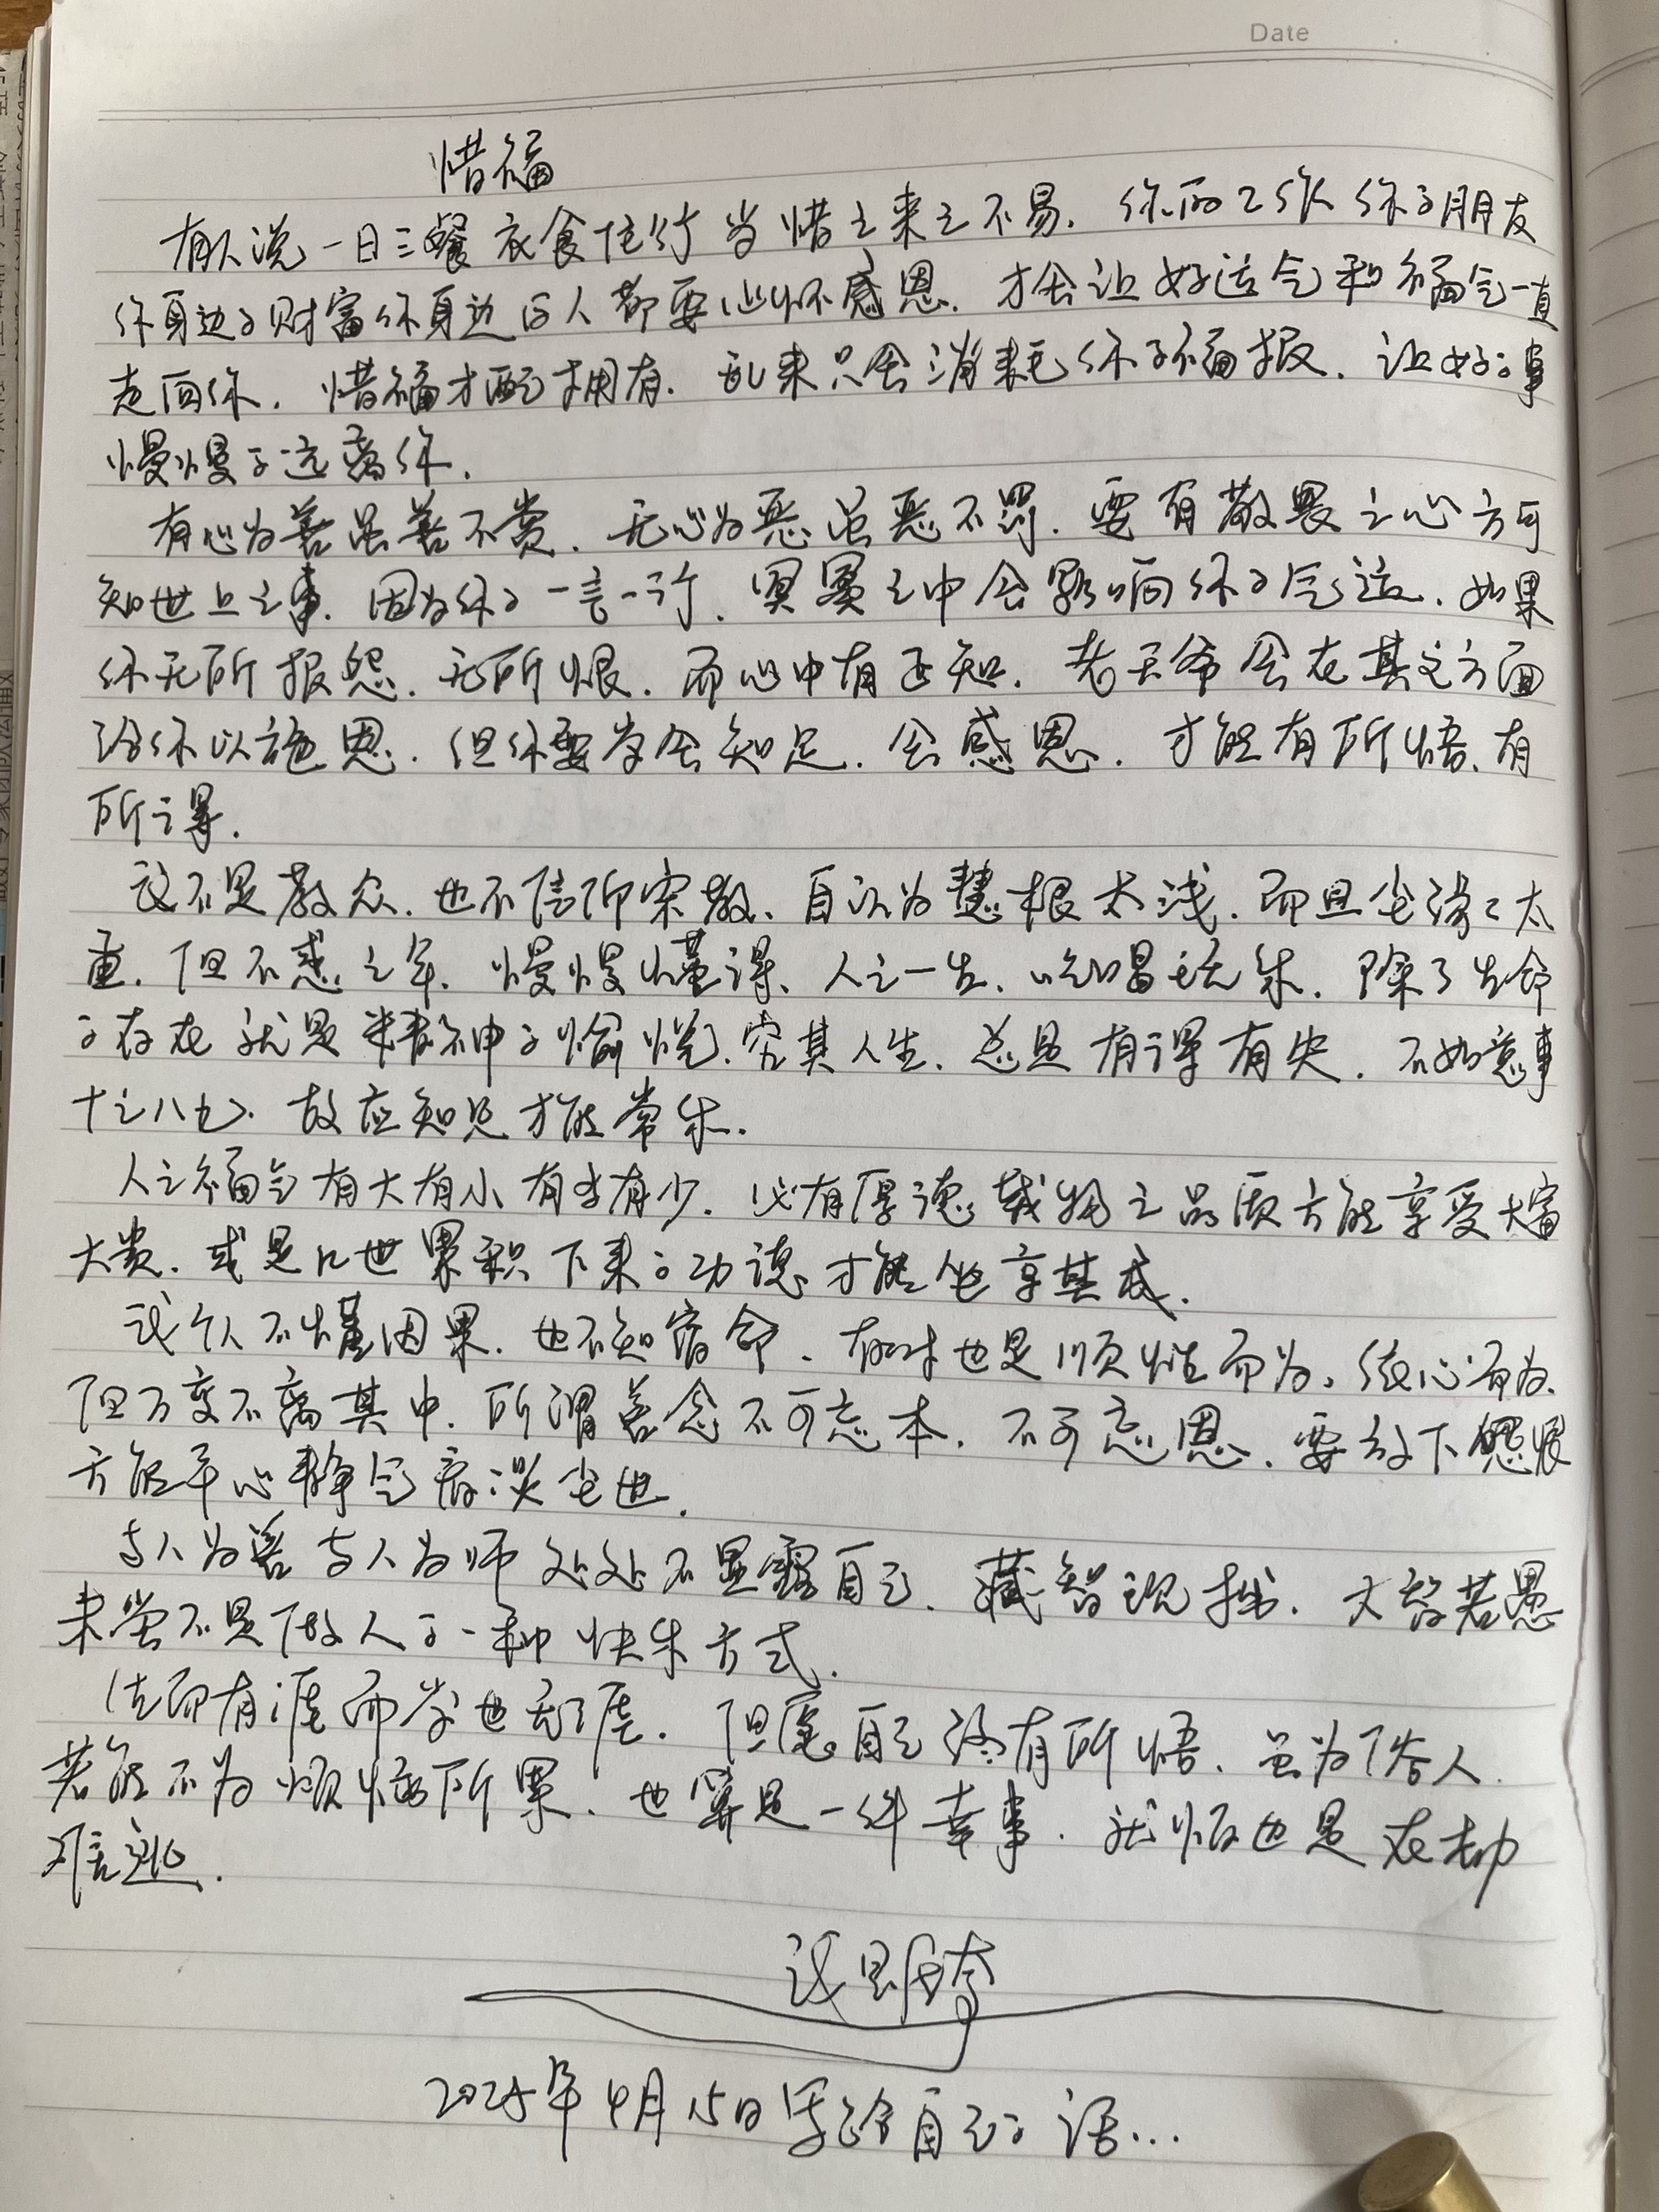 Date
惜福
有人说一日三餐衣食住行当惜之来之不易. 你的工作 你的朋友
你身边的财富你身边的人都要心怀感恩. 才会让好运气和福气一直
走向你. 惜福才配拥有. 乱来只会消耗你的福报. 让好的事
慢慢的远离你.
有心为善虽善不赏. 无心为恶虽恶不罚. 要有敬畏之心方可
知世上之事. 因为你的一言一行. 冥冥之中会影响你的气运. 如果
你无所报怨. 无所恨. 而心中有正知. 老天爷会在其它方面
给你以施恩. 但你要学会知足. 会感恩. 才能有所悟. 有
所得.
我不是教众. 也不信仰宗教. 自认为慧根太浅. 而且尘缘太
重. 但不惑之年. 慢慢懂得. 人之一生. 吃喝玩乐. 除了生命
的存在就是精神的愉悦. 穷其人生. 总是有得有失. 不如意事
十之八九. 故应知足才能常乐.
人之福气有大有小有多有少. 必有厚德载物之品质方能享受大富
大贵. 或是几世累积下来的功德才能坐享其成.
我个人不懂因果. 也不知宿命. 有时也是顺性而为. 从心而为.
但万变不离其中. 所谓善念不可忘本. 不可忘恩. 要放下怨恨
方能平心静气看淡尘世.
与人为善 与人为师 处处不显露自己. 藏智现拙. 大智若愚
未尝不是做人的一种快乐方式.
生而有涯而学也无涯. 但愿自己终有所悟. 虽为俗人.
若能不为烦恼所累. 也算是一件幸事. 就怕也是在劫
难逃.
2025年4月15日写给自己的话...